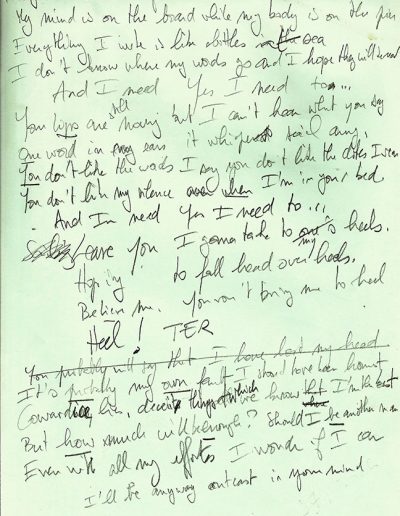 My mind is on the board while my body is on the pier
Everything I write is like bottles at sea
I don't know where my words go and I hope they will
And I need Yes I need to...
You lips are still moving but I can't hear what you say
One word in my ears it whispers sail away.
You don't like the words I say you don't like the clothes I wear
You don't like my silence and when I'm in your bed
And I'm need Yes I need to...
Leave you I gonna take to my heels.
Hoping to fall head over heels.
Believe me. You won't bring me to heel
Heel! TER
You probably will say that I have lost my head
It's probably my own fault I should have been honest
Cowardice, lies, deceit things at which we know that I'm the best
But how much will be enough? Should I be another man
Even with all my efforts I wonder if I can
I'll be anyway outcast in your mind